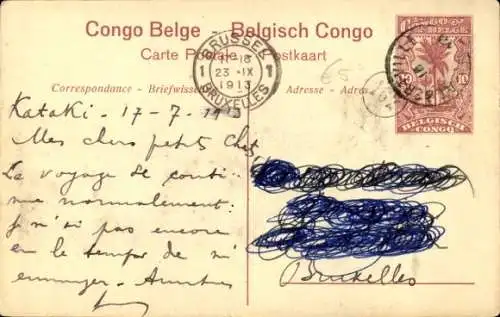 Congo Belge - Belgisch Congo
Carte Postale - Postkaart
Correspondance - Briefwissel
Adresse - Adres
BRUSSEL
23 IX
1913
BRUXELLES
1 1
10 10
BELGISCH
CONGO
65
Kataki. 17-7-1913
Mes chers petits
Le voyage se conti
nue normalement:
je n'ai pas encore
eu le temps de m'
ennuyer.
Bruxelles